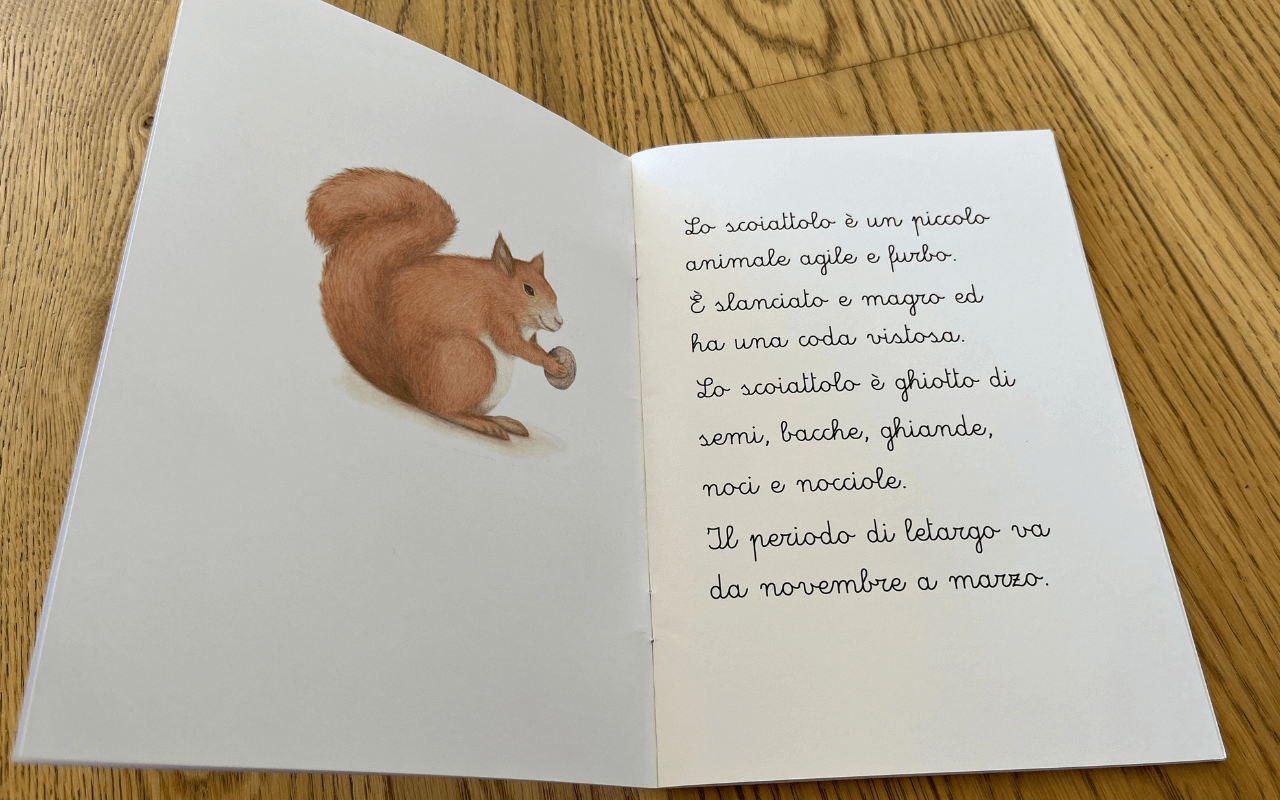 Lo scoiattolo è un piccolo
animale agile e furbo.
È slanciato e magro ed
ha una coda vistosa.
Lo scoiattolo è ghiotto di
semi, bacche, ghiande,
noci e nocciole.
Il periodo di letargo va
da novembre a marzo.